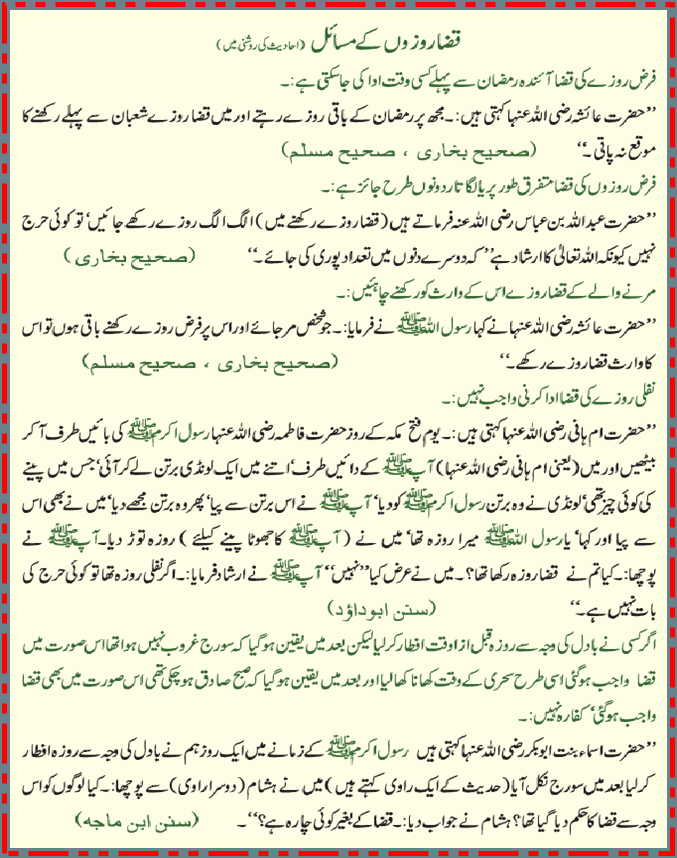 قضا روزوں کے مسائل (احادیث کی روشنی میں)
فرض روزے کی قضا آئندہ رمضان سے پہلے کسی وقت ادا کی جا سکتی ہے:۔
’’حضرت عائشہ رضی اللہ عنہا کہتی ہیں:۔ مجھ پر رمضان کے باقی روزے رہتے اور میں قضا روزے شعبان سے پہلے رکھنے کا
موقع نہ پاتی۔‘‘ (صحیح بخاری ، صحیح مسلم)
فرض روزوں کی قضا متفرق طور پر یا لگاتار دونوں طرح جائز ہے:۔
’’حضرت عبداللہ بن عباس رضی اللہ عنہ فرماتے ہیں (قضا روزے رکھنے میں) الگ الگ روزے رکھے جائیں‘ تو کوئی حرج
نہیں کیونکہ اللہ تعالیٰ کا ارشاد ہے’’ کہ دوسرے دنوں میں تعداد پوری کی جائے۔‘‘ (صحیح بخاری)
مرنے والے کے قضا روزے اس کے وارث کو رکھنے چاہئیں:۔
’’حضرت عائشہ رضی اللہ عنہا نے کہا رسول اللہ ﷺ نے فرمایا:۔ جو شخص مر جائے اور اس پر فرض روزے رکھنے باقی ہوں تو اس
کا وارث قضا روزے رکھے۔‘‘ (صحیح بخاری ، صحیح مسلم)
نفلی روزے کی قضا ادا کرنی واجب نہیں:۔
’’حضرت ام ہانی رضی اللہ عنہا کہتی ہیں:۔ یوم فتح مکہ کے روز حضرت فاطمہ رضی اللہ عنہا رسول اکرم ﷺ کی بائیں طرف آ کر
بیٹھیں اور میں (یعنی ام ہانی رضی اللہ عنہا) آپ ﷺ کے دائیں طرف‘ اتنے میں ایک لونڈی برتن لے کر آئی‘ جس میں پینے
کی کوئی چیز تھی‘ لونڈی نے وہ برتن رسول اکرم ﷺ کو دیا‘ آپ ﷺ نے اس برتن سے پیا‘ پھر وہ برتن مجھے دیا‘ میں نے بھی اس
سے پیا اور کہا‘ یا رسول اللہ ﷺ میرا روزہ تھا‘ میں نے (آپ ﷺ کا جھوٹا پینے کیلئے) روزہ توڑ دیا۔ آپ ﷺ نے
پوچھا:۔ کیا تم نے قضا روزہ رکھا تھا؟۔ میں نے عرض کیا ’’نہیں‘‘ آپ ﷺ نے ارشاد فرمایا:۔ اگر نفلی روزہ تھا تو کوئی حرج کی
بات نہیں ہے۔‘‘ (سنن ابوداؤد)
اگر کسی نے بادل کی وجہ سے روزہ قبل از وقت افطار کر لیا لیکن بعد میں یقین ہو گیا کہ سورج غروب نہیں ہوا تھا اس صورت میں
قضا واجب ہو گئی اسی طرح سحری کے وقت کھانا کھا لیا اور بعد میں یقین ہو گیا کہ صبح صادق ہو چکی تھی اس صورت میں بھی قضا
واجب ہو گئی‘ کفارہ نہیں:۔
’’حضرت اسماء بنت ابوبکر رضی اللہ عنہا کہتی ہیں رسول اکرم ﷺ کے زمانے میں ایک روز ہم نے بادل کی وجہ سے روزہ افطار
کر لیا بعد میں سورج نکل آیا (حدیث کے ایک راوی کہتے ہیں) میں نے ہشام (دوسرا راوی) سے پوچھا:۔ کیا لوگوں کو اس
وجہ سے قضا کا حکم دیا گیا تھا؟ ہشام نے جواب دیا:۔ قضا کے بغیر کوئی چارہ ہے؟‘‘۔ (سنن ابن ماجہ)